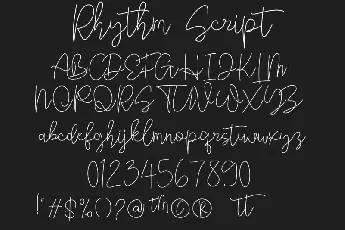 Rhythm Script
ABCDEFGHIJKLM
NOPQRSTUVWXYZ
abcdefghijklmnopqrstuvwxyz
01234567890
!"#$%()?@ ©®